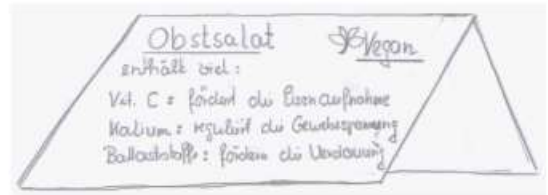 Obstsalat Vegan
enthält viel:
Vit. C : fördert die Eisenaufnahme
Kalium : reguliert die Gewebespannung
Ballaststoffe : fördern die Verdauung